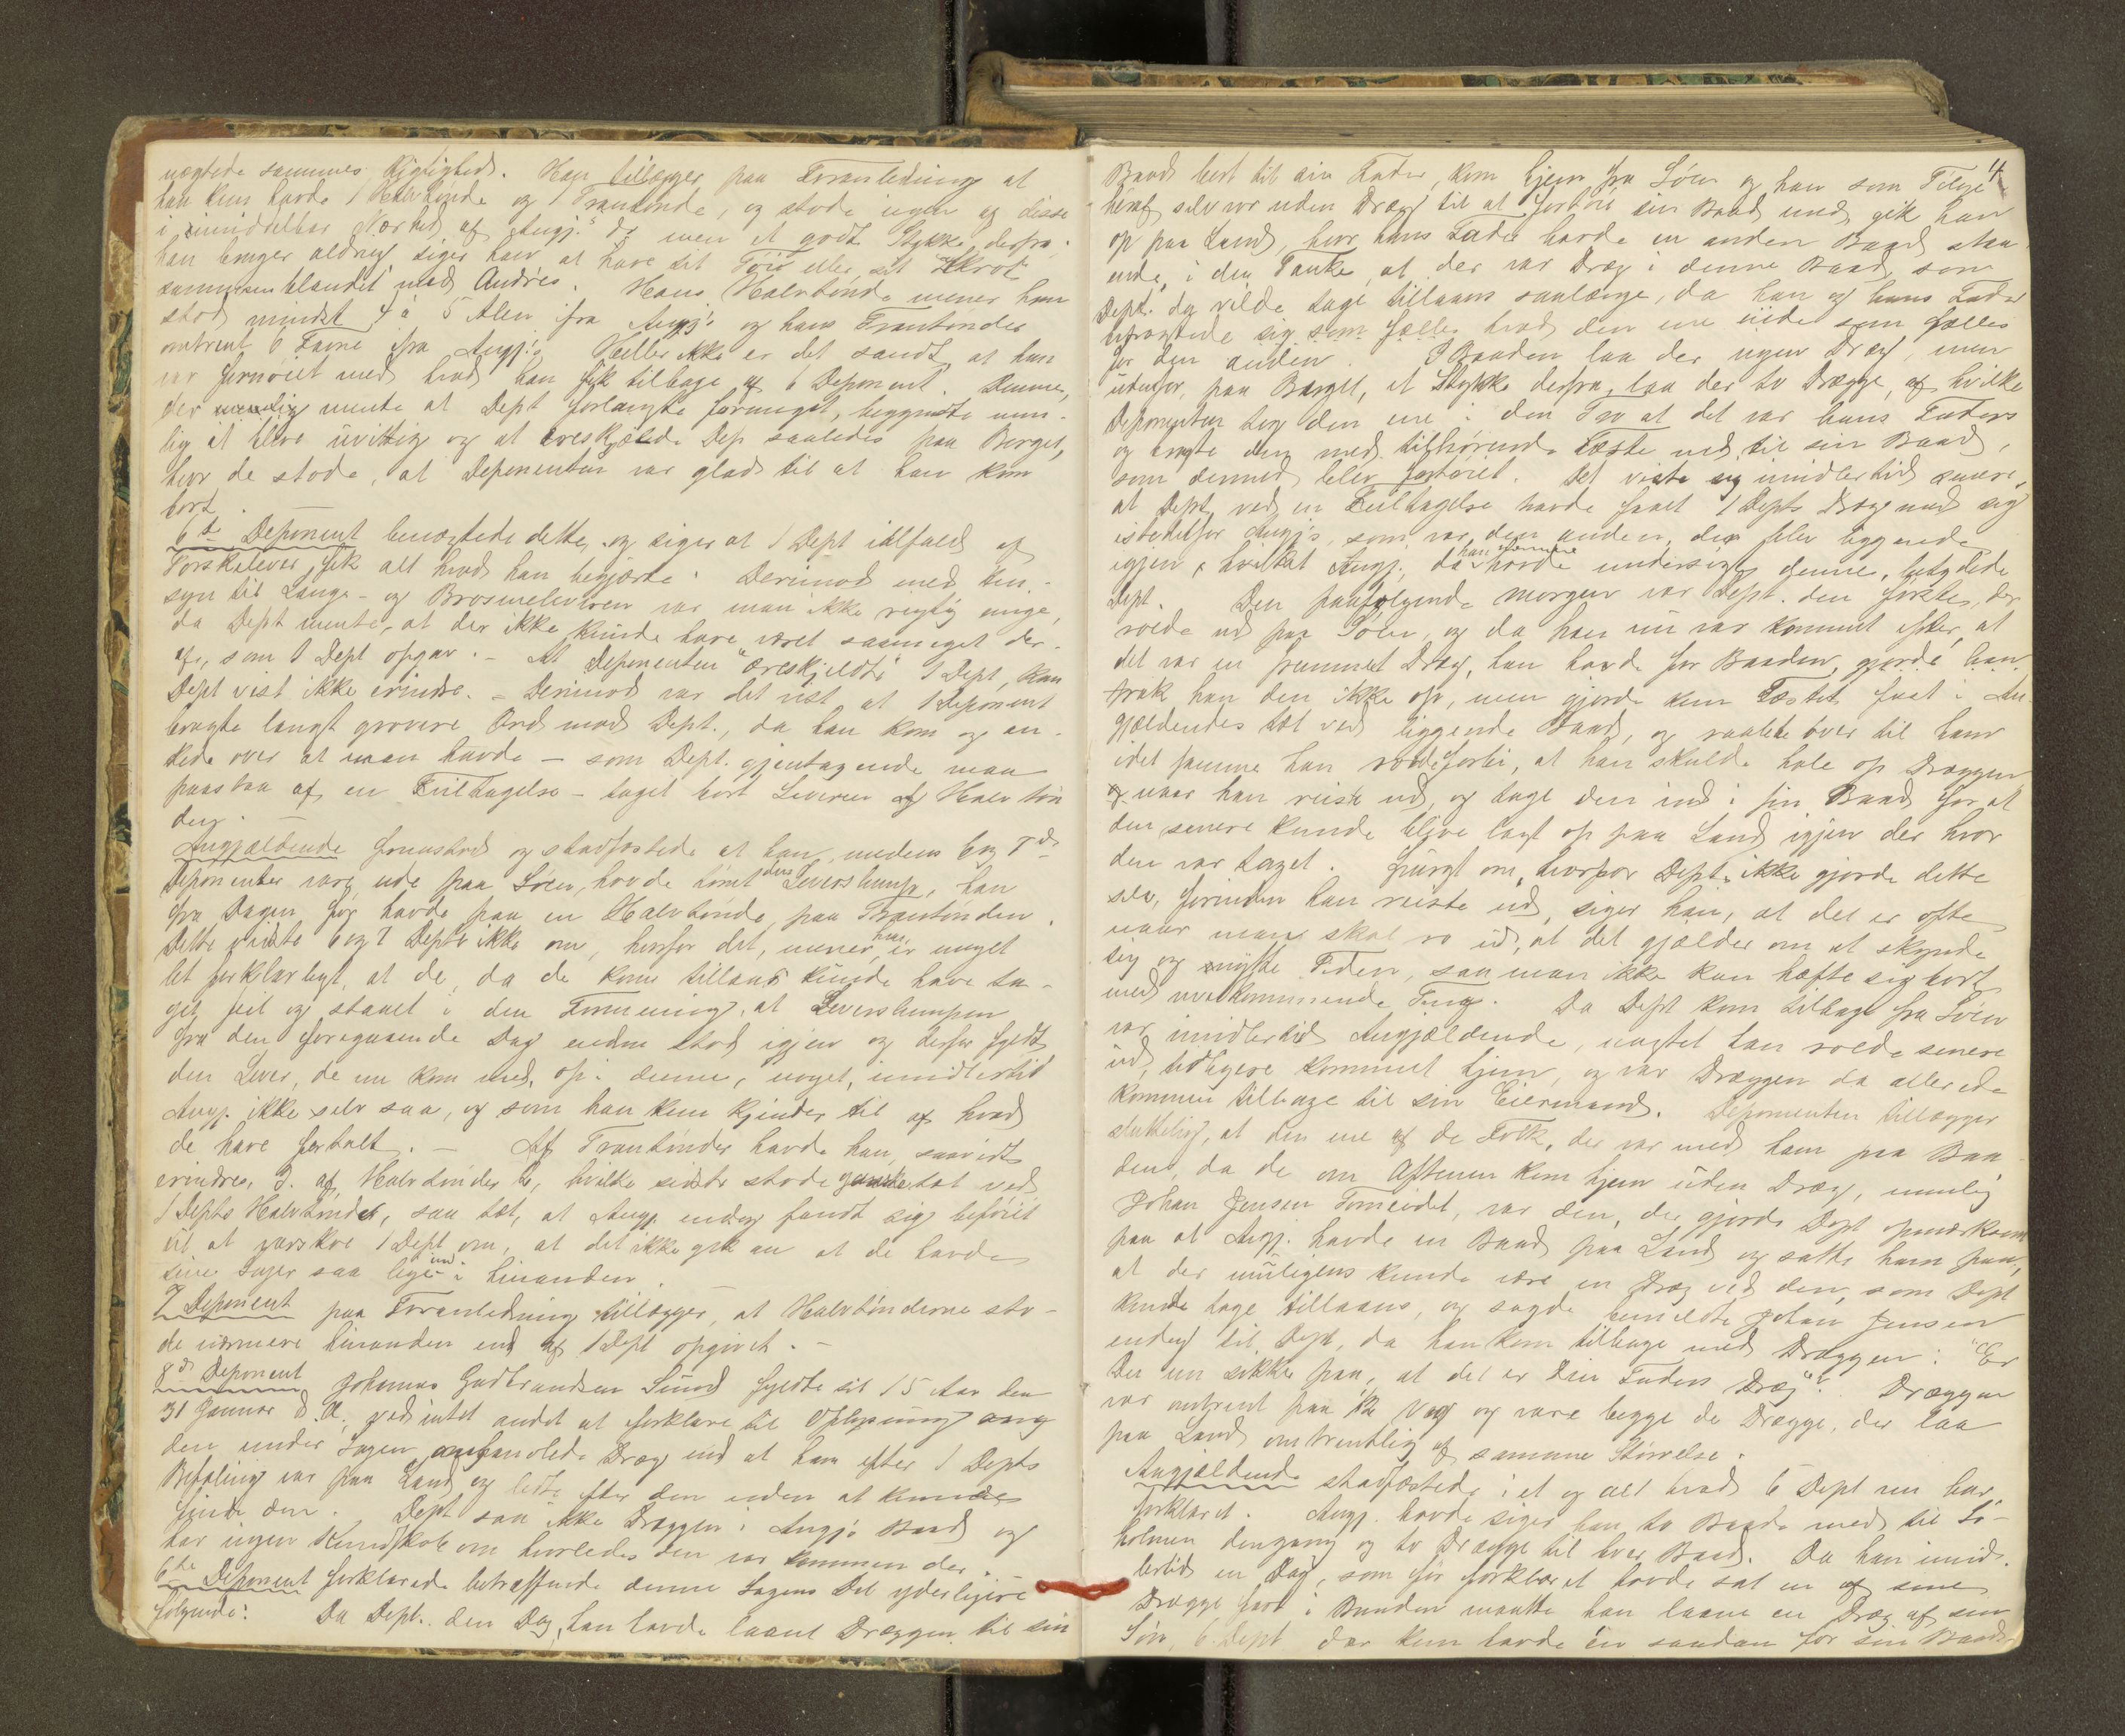 nægtede sammes Rigtighed. Han tillægger paa Foranledning at
han kun havde 1 Halvtønde og 1 Trantønde, og stode ingen af disse
i umiddelbar Nærhed af Angj.s do men et godt Stykke derfra.
han bruger aldrig siger han at have sit Tøie eller sit Skrot
sammenblandet med Andres. Hans Halvtønde mener han
stod mindst 4 à 5 Alen fra Angj's og hans Trantønder
omtrent 6 Favne fra Angj.s. Heller ikke er det sandt, at han
var fornøiet med hvad han fik tilbage af 6 Deponent. Denne,
der mente at Dept forlangte formeget, begyndte nem-
lig at blive uvittig og at æreskjælde Dep saaledes paa Berget,
hvor de stode, at Deponenten var glad til at han kom
bort.
6te Deponent benægtede dette, og siger at 1 Dept ialfald af
Torskelever fik alt hvad han begjærte. Derimod med Hen-
syn til Lange- og Brosmeleveren var man ikke rigtig enige,
da Dept mente, at der ikke kunde have været saameget der-
af, som 1 Dept opgav. - At Deponenten "æreskjeldte" 1 Dept, kan
Dept vist ikke erindre. - Derimod var det vist at 1 Deponent
brugte langt grovere Ord mod Dept., da han kom og an-
kede over at man havde - som Dept. gjentagende maa
paastaa af en Feiltagelse - taget bort Leveren af Halvtøn
den.
Angjældende fremstod og stadfæstede at han, medens 6 og 7de
Deponenter vare ude paa Søen, havde tømt deres Leverslump, han
fra Dagen før havde paa en Halvtønde, paa Trantønden.
Dette vidste 6 og 7 Depts ikke om, hvorfor det, mener han, er meget
let forklarligt, at de, da de kom tillands kunde have ta-
get feil og staaet i den Formening, at Leverslumpen
fra den foregaaende Dag endnu stod igjen og derfor fyldt
den Lever, de nu kom med, op i denne, noget, imidlertid
Angj. ikke selv saa, og som han kun kjender til af hvad
de have fortalt. - Af Trantønder havde han, saavidt
erindres, 3. af Halvtønder 2, hvilke sidste stode ganske tæt ved
1 Depts Halvtønder, saa tæt, at Angj. endog fandt sig beføiet
til at varskoe 1 Dept om, at det ikke gik an at de havde
sine Sager saa lige ind i hinanden.
7 Deponent paa Foranledning tillægger, at Halvtønderne sto-
de nærmere hinanden end af 1 Dept opgivet. -
8de Deponent Johannes Gudbrandsen Sund fyldte sit 15 Aar den
31 Januar d. A. ved intet andet at forklare til Oplysning ang
den under Sagen omhandlede Dræg end at han efter 1 Depts
Befaling var paa Land og ledte efter den uden at kunde
finde den. Dept saa ikke Dræggen i Angj's Baad og
har ingen Kundskab om hvorledes den var kommen der.
6te Deponent forklarede betræffende denne Sagens Del yderligere
følgende: Da Dept. den Dag, han havde laant Dræggen til sin
4
Baad bort til sin Fader, kom hjem fra Søen og han som Følge
heraf selv var uden Dræg til at fortøie sin Baad med gik han
op paa Land, hvor hans Fader havde en anden Baad staa
ende, i den Tanke, at der var Dræg i denne Baad, som
Dept. da vilde tage tillaans saalænge, da han og hans Fader
betragtede sig som fælles hvad den ene eiede som fælles
for den anden. I Baaden laa der ingen Dræg, men
udenfor, paa Berget, et Stykke derfra, laa der to Drægge, af hvilke
Deponenten tog den ene i den Tro at det var hans Faders
og bragte den med tilhørende Tæste ned til sin Baad,
som dermed blev fortøiet. Det viste sig imidlertid senere,
at Dept ved en Feiltagelse havde faaet 1 Depts Dræg med sig
istedetfor Angj's, som var den anden, der blev liggende
igjen, hvilket Angj., da han senere havde undersøgt denne, betydede
Dept. Den paafølgende Morgen var Dept. den første, der
roede ud paa Søen, og da han nu var kommet efter, at
det var en fremmed Dræg, han havde for Baaden, gjorde han
trak han den ikke op, men gjorde kun Tæstet fast i An
gjældendes tæt ved liggende Baad, og raabte over til ham
idet samme han roede forbi, at han skulde hale op Dræggen
naar han reiste ud, og tage den ind i sin Baad for at
den senere kunde blive lagt op paa Land igjen der hvor
den var taget. Spurgt om, hvorfor Dept. ikke gjorde dette
selv, forinden han reiste ud, siger han, at det er ofte
naar man skal ro ud, at det gjælder om at skynde
sig og nytte Tiden, saa man ikke kan hæfte sig bort
med uvedkommende Ting. Da Dept kom tilbage fra Søen
var imidlertid Angjældende, uagtet han roede senere
ud, tidligere kommet hjem, og var Dræggen da allerede
kommen tilbage til sin Eiermand. Deponenten tillægger
sluttelig, at den ene af de Folk, der var med ham paa Baa
den, da de om Aftenen kom hjem uden Dræg, nemlig
Johan Jensen Tomeidet, var den, der gjorde Dept opmærksom
paa at Angj. havde en Baad paa Land og satte ham paa,
at der muligens kunde være en Dræg ved den, som Dept
kunde tage tillaans, og sagde bemeldte Johan Jensen
endog til Dept, da han kom tilbage med Dræggen: "Er
Du nu sikker paa, at det er Din Faders Dræg"? Dræggen
var omtrent paa 1/2 Vog og vare begge de Drægge, der laa
paa Land omtrentlig af samme Størrelse.
Angjældende stadfæstede i et og alt hvad 6 Dept nu har
forklaret. Angj. havde siger han to Baade med til Sø-
holmen dengang og to Drægge til hver Baad. Da han imid-
lertid en Dag, som før forklaret havde sat en af sine
Drægge fast i Bunden maatte han laane en Dræg af sin
Søn, 6 Dept der kun havde én saadan for sin Baad